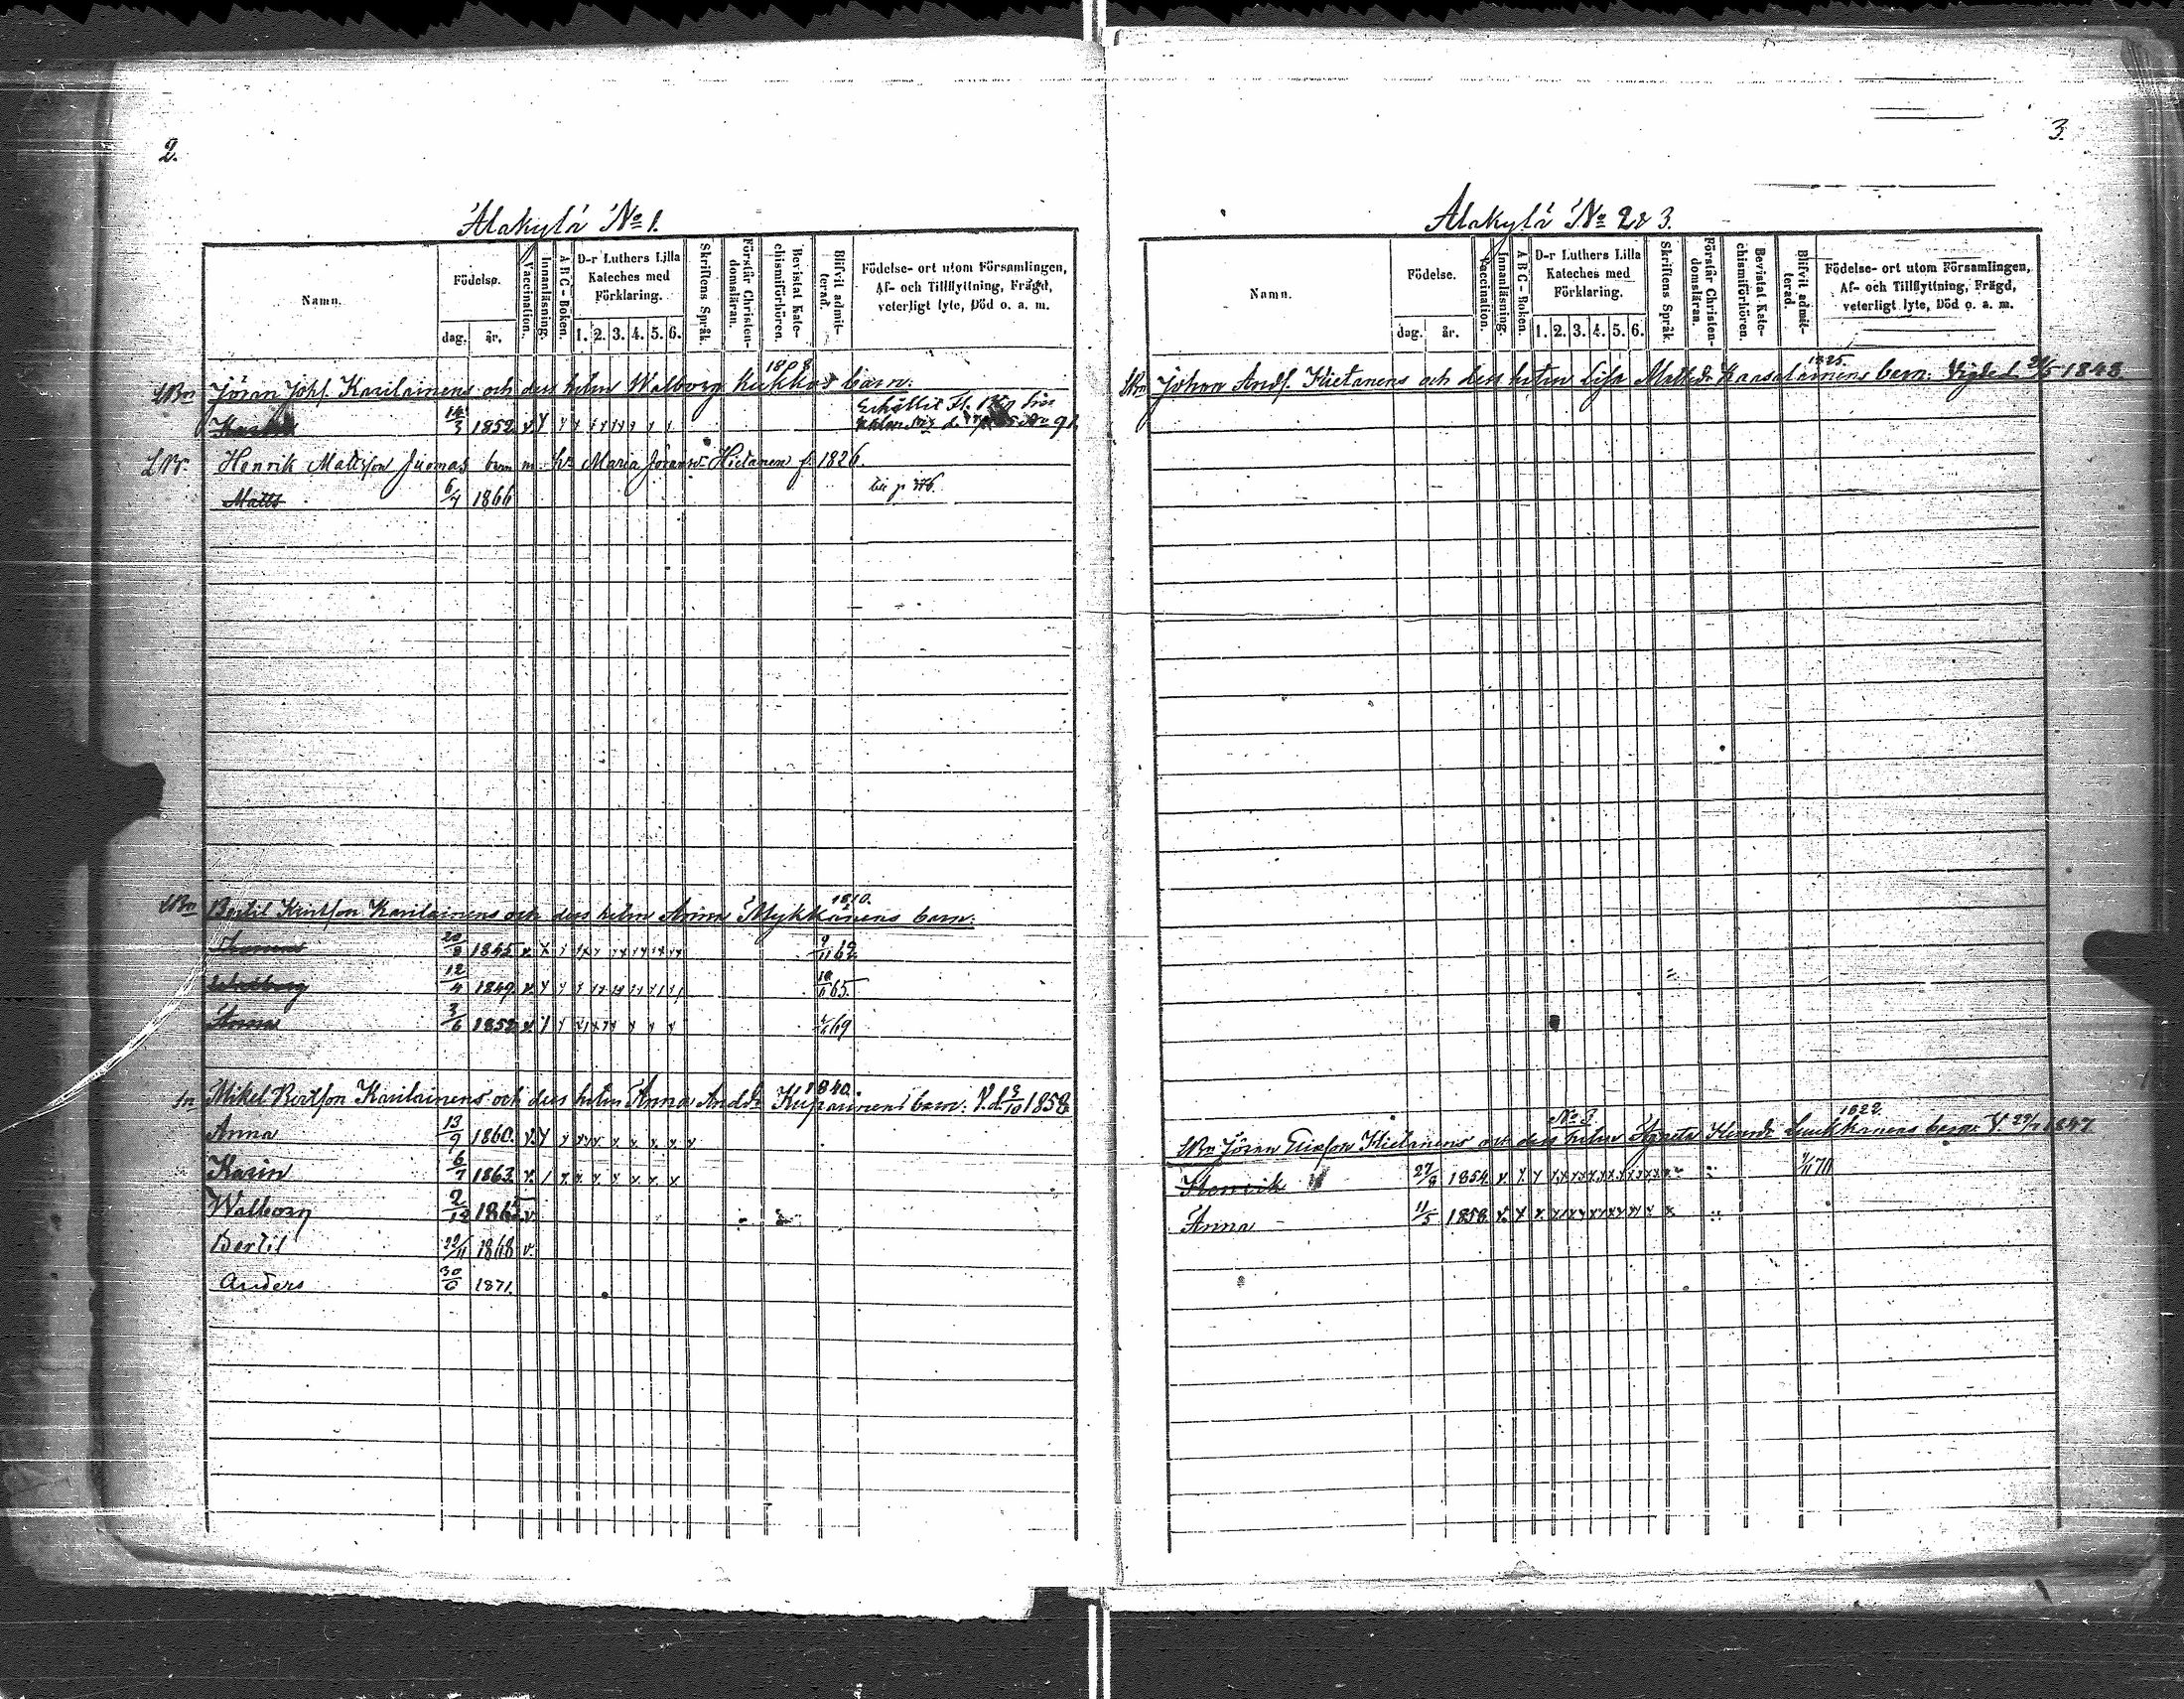 2.
Alakylä No 1.
Namn.
Födelse.
dag. år.
Vaccination.
Innanläsning.
A B C - Boken.
D-r Luthers Lilla Kateches med Förklaring.
1. 2. 3. 4. 5. 6.
Skriftens Språk.
Förstår Christendomsläran.
Bevistat Katechismiförhören.
Blifvit admitterad.
Födelse- ort utom Församlingen, Af- och Tillflyttning, Frägd, veterligt lyte, Död o. a. m.
1808
Jöran Johs. Karilainens och dess hstru Walborg Kukkos barn:
14/3 1852
Henrik Mattsson Juonas barn m. h. Maria Jöransdr Hietanen f. 1826.
Matts 6/4 1866
1810.
Bertil Karilainens och dess hstru Anna Mykkänens barn.
Thomas 20/8 1845 9/11 62
Walborg 12/4 1849 10/11 65.
Anna 3/6 1852 69
1840.
Mikel Bertson Karilainens och dess hstru Anna Andr. Kuparinens barn: V. d. 3/10 1858
Anna 13/9 1860.
Karin 6/7 1863.
Walborg 2/12 1865
Bertil 22/11 1868
Anders 30/6 1871.
3.
Alakylä No 2 & 3.
Namn.
Födelse.
dag. år.
Vaccination.
Innanläsning.
A B C - Boken.
D-r Luthers Lilla Kateches med Förklaring.
1. 2. 3. 4. 5. 6.
Skriftens Språk.
Förstår Christendomsläran.
Bevistat Katechismiförhören.
Blifvit admitterad.
Födelse- ort utom Församlingen, Af- och Tillflyttning, Frägd, veterligt lyte, Död o. a. m.
1825
Johan Ands. Hietanens och dess hstru Lisa Mattsdr Kaasalainens barn. Vigde d. 1848.
No 3.
1822.
Jöran Eliasson Hietanens och dess hstru Agneta Henrdr barn. V. 1847
Henrik 27/8 1854 70
Anna 11/5 1858